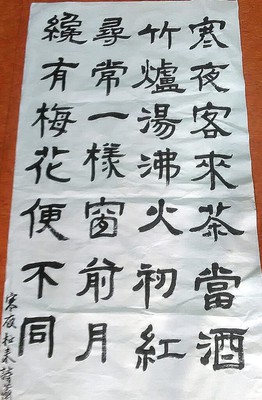 寒夜客來茶當酒
竹爐湯沸火初紅
尋常一樣窗前月
纔有梅花便不同
寒夜杜耒詩